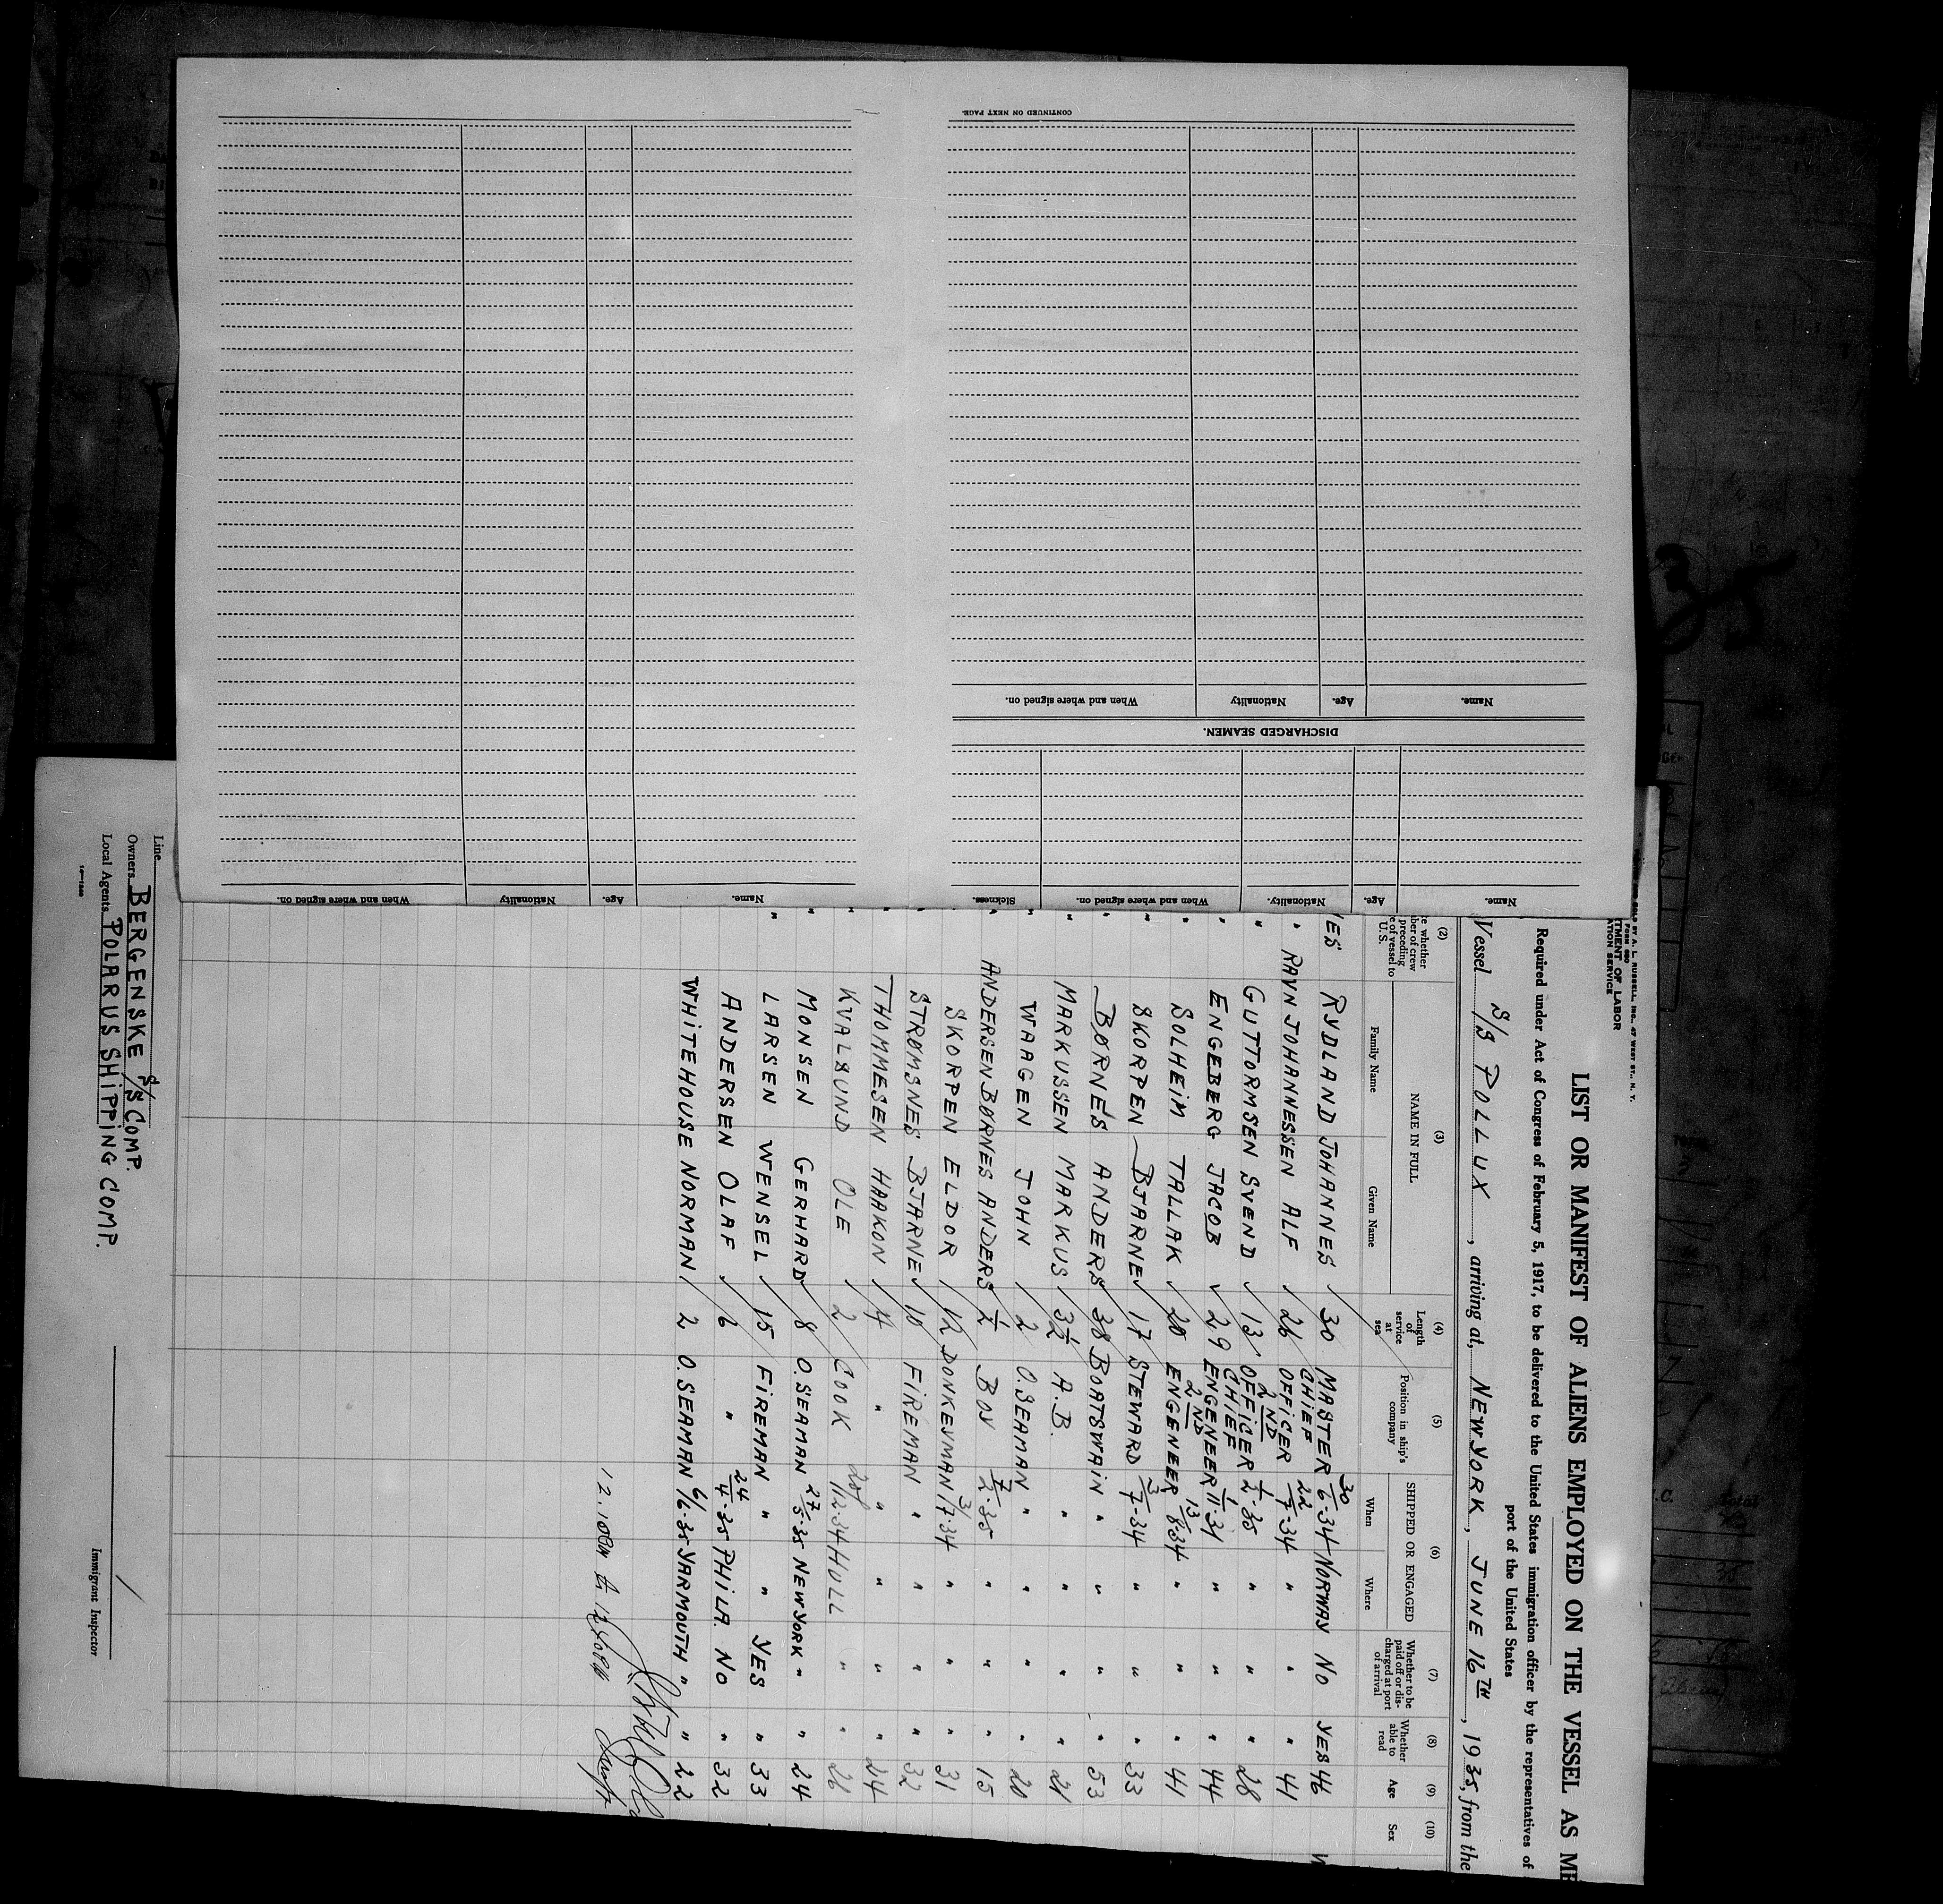 CONTINUED ON NEXT PAGE.
Name. Age. Nationality When and where signed on.
DISCHARGED SEAMEN.
Name. Age. Nationality. When and where signed on. Sickness.
Name. Age. Nationality When and where signed on.
SOLD BY A. L. RUSSELL, INC., 47 WEST ST., N. Y.
FORM 680
TMENT OF LABOR
ATION SERVICE
LIST OR MANIFEST OF ALIENS EMPLOYED ON THE VESSEL AS ME
Required under Act of Congress of February 5, 1917, to be delivered to the United States immigration officer by the representatives of
port of the United States
Vessel S/S POLLUX, arriving at, NEW YORK, JUNE 16TH, 1935, from the
(2) (3) (4) (5) (6) (7) (8) (9) (10)
e whether
ber of crew
preceding
e of vessel to
U. S.
NAME IN FULL
Family Name Given Name
Length of service at sea
Position in ship's company
SHIPPED OR ENGAGED
When Where
Whether to be paid off or discharged at port of arrival
Whether able to read
Age
Sex
YES RYDLAND JOHANNES 30 MASTER 30/6-34 NORWAY NO YES 46
" RAVN JOHANNESSEN ALF 26 CHIEF OFFICER 22/7-34 " " " 41
" GUTTORMSEN SVEND 13 2ND OFFICER 1/2-35 " " " 28
" ENGEBERG JACOB 29 CHIEF ENGENEER 1/11-31 " " " 44
" SOLHEIM TALLAK 20 2ND ENGENEER 13/8-34 " " " 41
" SKORPEN BJARNE 17 STEWARD 3/7-34 " " " 33
" BØRNES ANDERS 38 BOATSWAIN " " " " 53
" MARKUSSEN MARKUS 3½ A.B. " " " " 21
" WAAGEN JOHN 2 O.SEAMAN " " " " 20
" ANDERSEN BØRNES ANDERS ½ BOY 7/2-35 " " " 15
" SKORPEN ELDOR 12 DONKEYMAN 3/7-34 " " " 31
" STRØMSNES BJARNE 10 FIREMAN " " " " 32
" THOMMESEN HAAKON 4 " " " " " 24
" KVALSUND OLE 2 COOK 1/12-34 HULL " " 26
" MONSEN GERHARD 8 O.SEAMAN 27/5-35 NEW YORK " " 24
" LARSEN WENSEL 15 FIREMAN " " YES " 33
ANDERSEN OLAF 6 " 24/4-35 PHILA. NO " 32
WHITEHOUSE NORMAN 2 O.SEAMAN 6/6-35 YARMOUTH " " 22
Line
Owners BERGENSKE S/S COMP.
Local Agents POLARUS SHIPPING COMP.
Immigrant Inspector